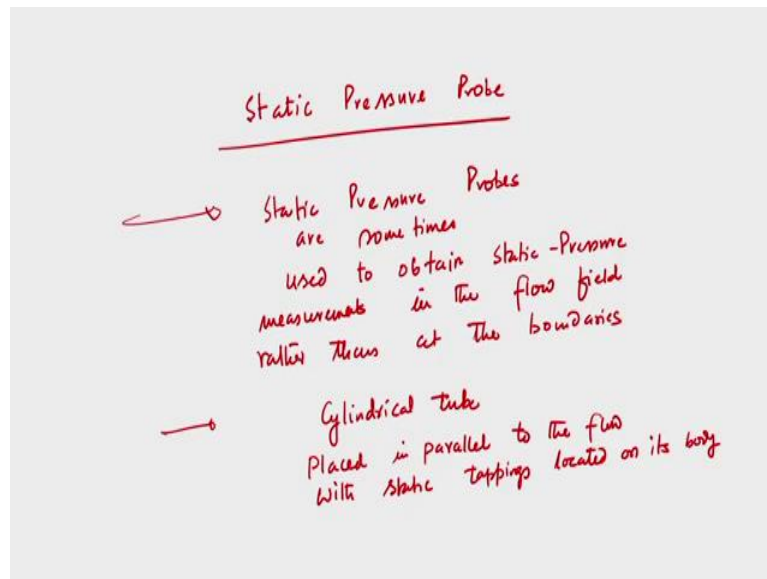 Static Pressure Probe
Static Pressure Probes
are some times
used to obtain static-Pressure
measurements in the flow field
rather than at the boundaries
Cylindrical tube
Placed in parallel to the flow
with static tappings located on its body